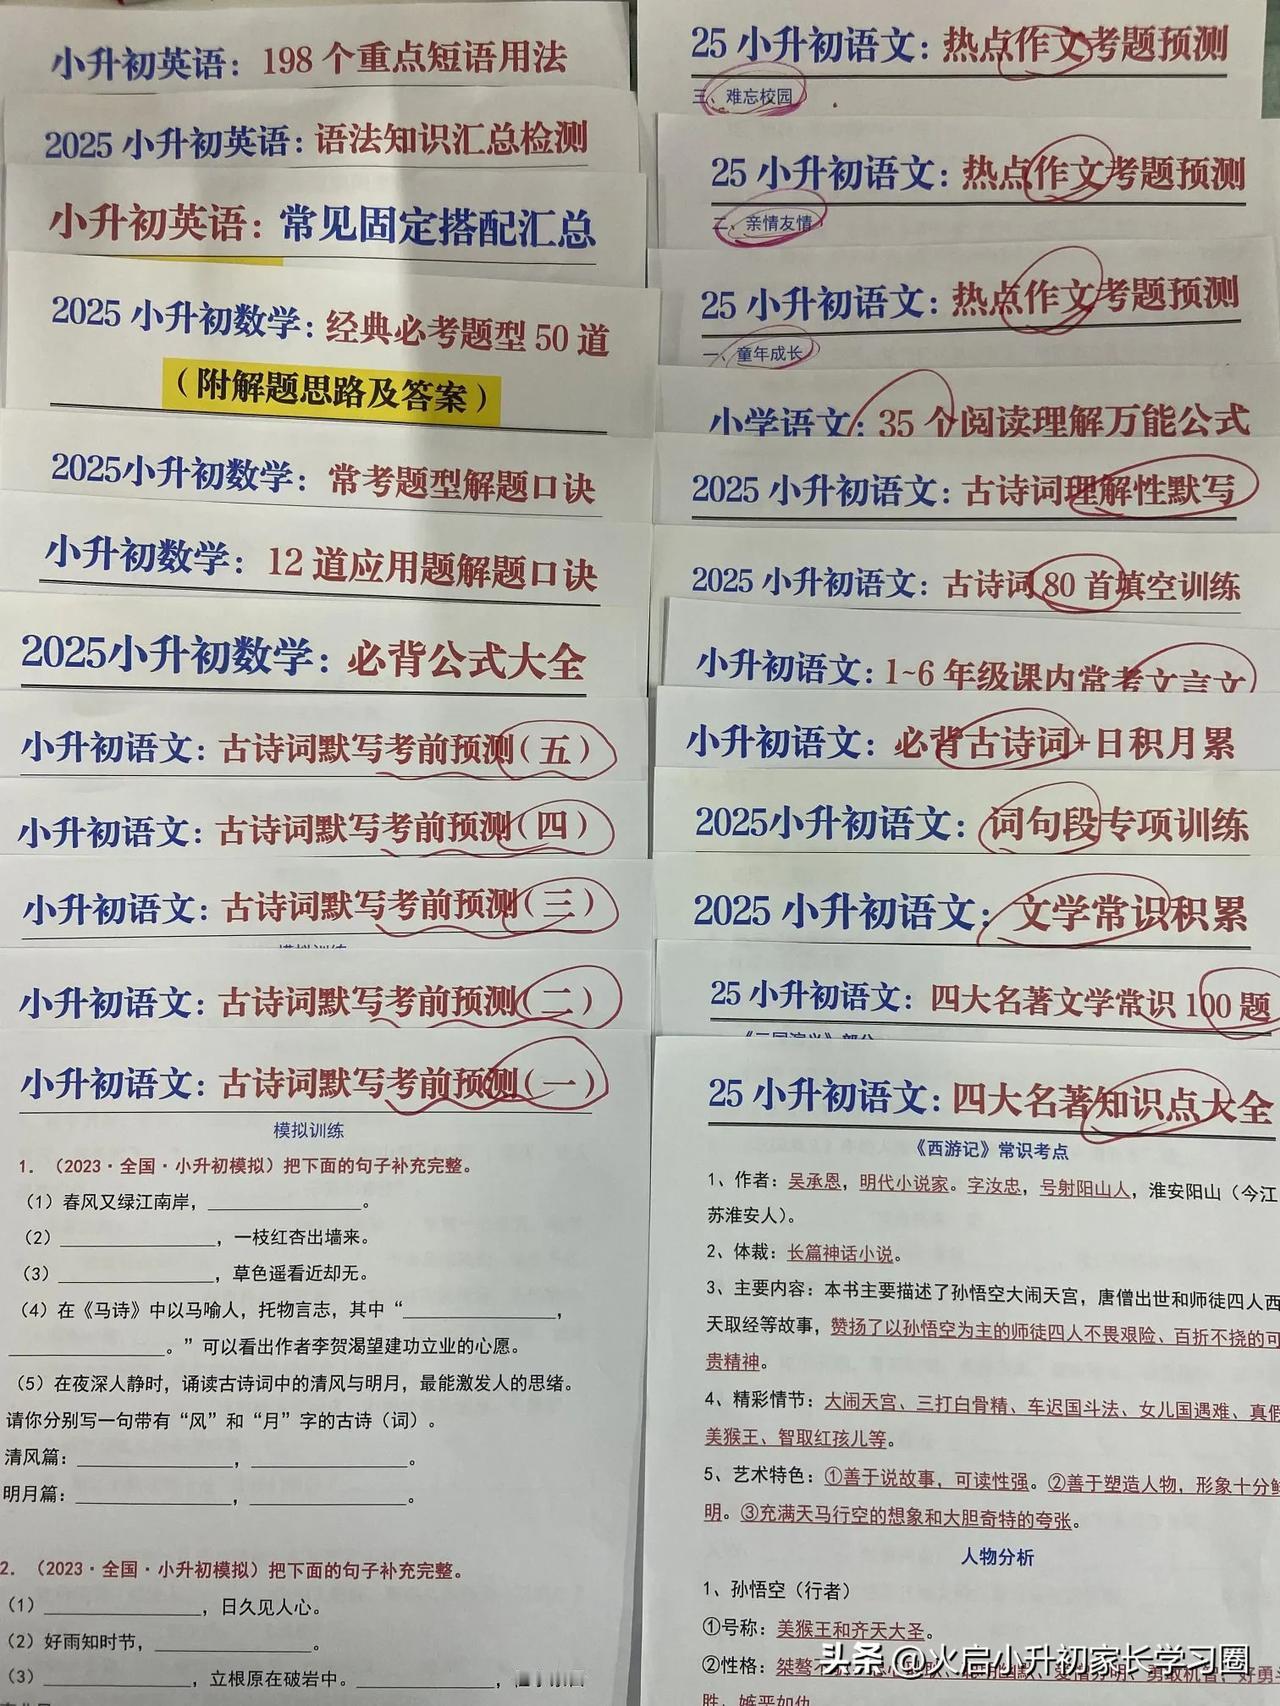 小升初英语：198个重点短语用法
2025 小升初英语：语法知识汇总检测
小升初英语：常见固定搭配汇总
2025 小升初数学：经典必考题型50道
（附解题思路及答案）
2025小升初数学：常考题型解题口诀
小升初数学：12道应用题解题口诀
2025小升初数学：必背公式大全
小升初语文：古诗词默写考前预测（五）
小升初语文：古诗词默写考前预测（四）
小升初语文：古诗词默写考前预测（三）
模拟训练
小升初语文：古诗词默写考前预测（二）
小升初语文：古诗词默写考前预测（一）
模拟训练
1.（2023·全国·小升初模拟）把下面的句子补充完整。
（1）春风又绿江南岸，________________。
（2）________________，一枝红杏出墙来。
（3）________________，草色遥看近却无。
（4）在《马诗》中以马喻人，托物言志，其中“________________，
________________。”可以看出作者李贺渴望建功立业的心愿。
（5）在夜深人静时，诵读古诗词中的清风与明月，最能激发人的思绪。
请你分别写一句带有“风”和“月”字的古诗（词）。
清风篇：________________，________________。
明月篇：________________，________________。
2.（2023·全国·小升初模拟）把下面的句子补充完整。
（1）________________，日久见人心。
（2）好雨知时节，________________。
（3）________________，立根原在破岩中。________________，
25 小升初语文：热点作文考题预测
三、难忘校园
25 小升初语文：热点作文考题预测
二、亲情友情
25 小升初语文：热点作文考题预测
一、童年成长
小学语文：35个阅读理解万能公式
2025 小升初语文：古诗词理解性默写
2025 小升初语文：古诗词80首填空训练
小升初语文：1~6年级课内常考文言文
小升初语文：必背古诗词+日积月累
2025小升初语文：词句段专项训练
2025 小升初语文：文学常识积累
25 小升初语文：四大名著文学常识100题
《三国演义》部分
25 小升初语文：四大名著知识点大全
《西游记》常识考点
1、作者：吴承恩，明代小说家。字汝忠，号射阳山人，淮安阳山（今江
苏淮安人）。
2、体裁：长篇神话小说。
3、主要内容：本书主要描述了孙悟空大闹天宫，唐僧出世和师徒四人西
天取经等故事，赞扬了以孙悟空为主的师徒四人不畏艰险、百折不挠的可
贵精神。
4、精彩情节：大闹天宫、三打白骨精、车迟国斗法、女儿国遇难、真假
美猴王、智取红孩儿等。
5、艺术特色：①善于说故事，可读性强。②善于塑造人物，形象十分鲜
明。③充满天马行空的想象和大胆奇特的夸张。
人物分析
1、孙悟空（行者）
①号称：美猴王和齐天大圣。
②性格：桀骜不
胜，嫉恶如仇
头条 @火启小升初家长学习圈